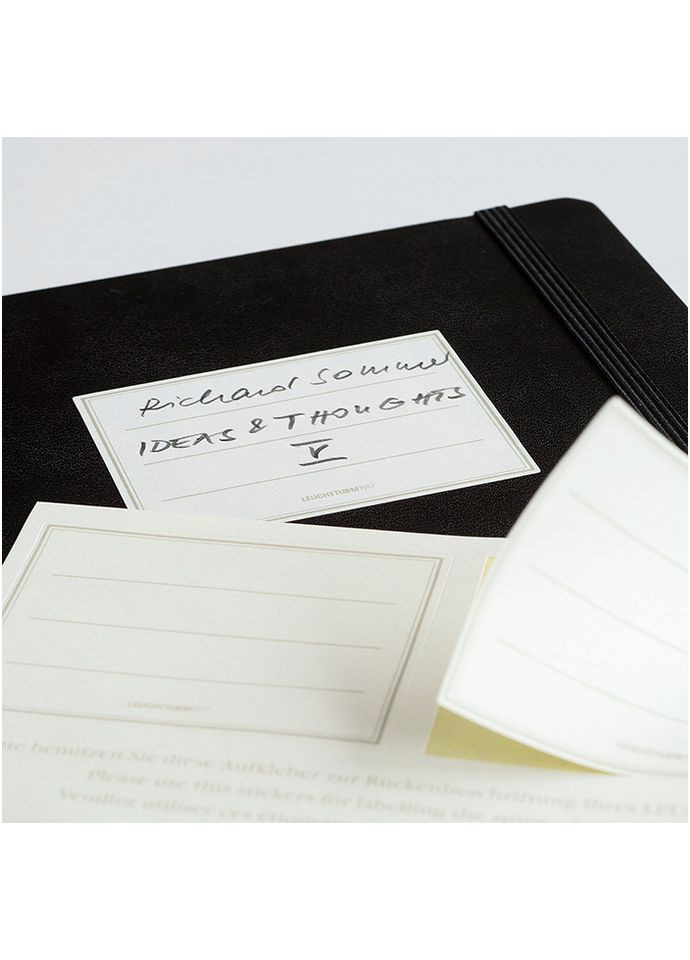 Richard Sommer
IDEAS & THOUGHTS
V
LEUCHTTURM1917
LEUCHTTURM1917
LEUCHTTURM
benutzen Sie diese Aufkleber zur Rückenbeschriftung Ihres LEU
Please use this stickers for labelling the spine
Veuillez utiliser ces